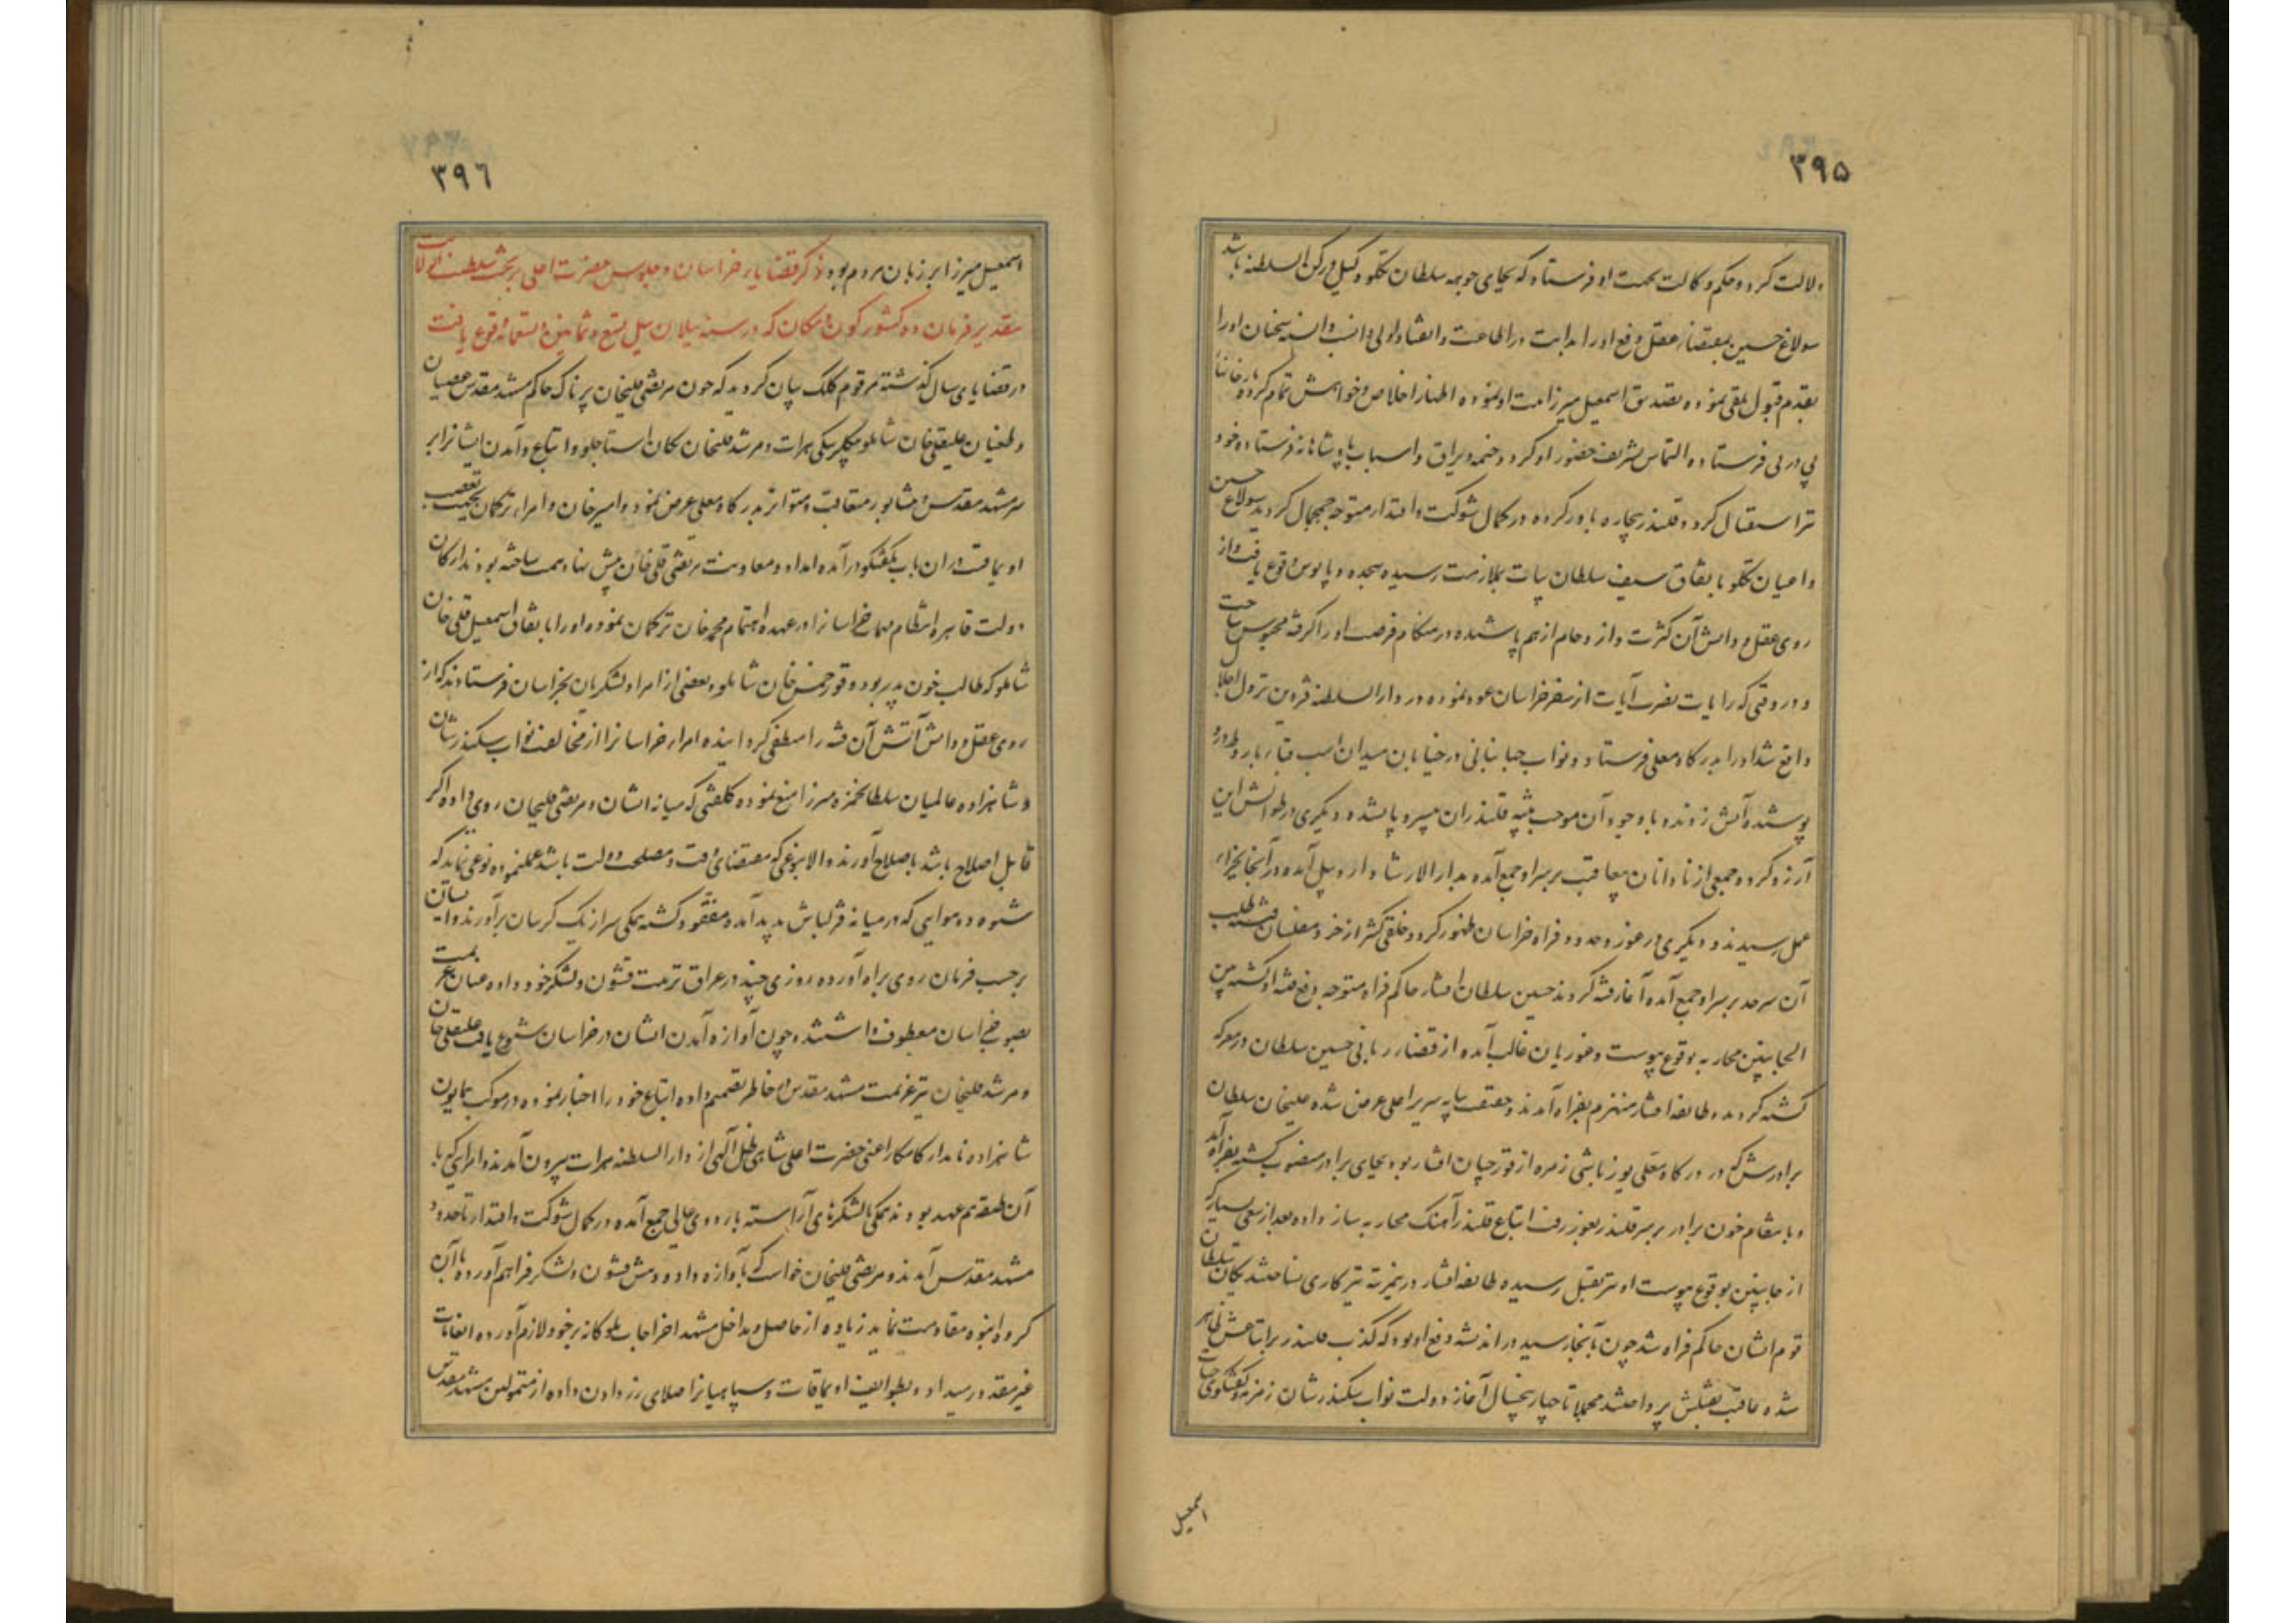 ۳۹۵
دلالت کرد و حکم وکالت بجهت او فرستاد که بجای جوهه سلطان تکلو وکیل و رکن السلطنه باشد
سولاغ حسین بمقتضاء عقل دفع او را بدایت در اطاعت و انقیاد اولی و انسب دانسته سخنان او را
بقدم قبول تلقی نموده تصدیق اسمعیل میرزائیت او نموده اظهار اخلاص و خواهش تمام کرده خانها
پی در پی فرستاده التماس تشریف حضور او کرد و خیمه و یراق و اسباب پادشاهانه فرستاده خود
نیز استقبال کرد و قلندر بیچاره باور کرده در کمال شوکت و اقتدار متوجه جمجمال کردید سولاغ حسین
و اعیان تکلو باتفاق سیف سلطان بیات بملازمت رسیده سجده و پابوس وقوع یافت و از
روی عقل و دانش آن کثرت و ازدحام از هم پاشیده در هنکام فرصت او را کرفته محبوس ساخت
و در وقتی که رایات نصرت آیات از سفر خراسان عود نموده در دارالسلطنه قزوین نزول اجلال
واقع شد او را بدرکاه معلی فرستاد و نواب جهانبانی در خیابان میدان اسب قباء باروط بر او
پوشیده آتش زدند و با وجود آن موجب تنبیه قلندران بی سر و پا نشده دیکری در طوالش این
آرزو کرده و جمعی از نادانان بیعاقبت بر سر او جمع آمده بدار الارشاد اردبیل آمده در آنجا بجزای
عمل رسیدند و دیکری در غور و حدود فراه خراسان ظهور کرد و خلقی کثیر از خرد و مفلسان فتنه طلب
آن سرحد بر سر او جمع آمده آغاز فتنه کردند حسین سلطان افشار حاکم فراه متوجه دفع فتنه او کشته بین
الجانبین محاربه بوقوع پیوست و غوریان غالب آمده از قضاء ربانی حسین سلطان در معرکه
کشته کردید و طایفه افشار منهزم بفراه آمدند و حقیقت بپایه سریر اعلی عرض شده علیخان سلطان
برادرش که در درکاه معلی یوزباشی زمره از قورچیان افشار بود بجای برادر منصوب کشته بفراه آمد
و بانتقام خون برادر بر سر قلندر بغور رفت اتباع قلندر آهنک محاربه ساز داده بعد از سعی بسیار که
از جانبین بوقوع پیوست او نیز بقتل رسیده طایفه افشار در این مرتبه نیز کاری نساختند یکان سلطان
قوم ایشان حاکم فراه شد چون بآنجا رسید در اندیشه دفع او بود که کذب قلندر بر اتباعش ظاهر
شده عاقبت بقتلش پرداختند مجملا تا چهار پنجسال آغاز دولت نواب سکندرشان زمزمه و کفتکوی حیات
اسمعیل
۳۹۶
اسمعیل میرزا بر زبان مردم بود ذکر قضایاء خراسان و جلوس حضرت اعلی بر تخت سلطنت ایالات
بتقدیر فرمان ده کشور کون و مکان که در سنه ییلان ئیل تسع و ثمانین و تسعمائه وقوع یافت
در قضایای سال کذشته مرقوم کلک بیان کردید که چون مرتضی قلیخان پرناک حاکم مشهد مقدس عصیان
و طغیان علیقلی خان شاملو بیکلر بیکی هرات و مرشد قلیخان کان استاجلو و اتباع و آمدن ایشانرا بر
سر مشهد مقدس و نیشابور متعاقب و متواتر بدرکاه معلی عرض نمود و امیرخان و امراء ترکمان بجهت تعصب
اویماقیت در آن باب بکفتکو درآمده امداد و معاونت مرتضی قلی خان پیش نهاد همت ساخته بودند ارکان
دولت قاهره انتظام مهمات خراسانرا در عهده اهتمام محمدخان ترکمان نموده او را باتفاق اسمعیل قلی خان
شاملو که طالب خون پدر بود و قورخمس خان شاملو و بعضی از امرا و لشکریان بخراسان فرستادند که از
روی عقل و دانش آتش آن فتنه را منطفی کردانیده امراء خراسانرا از مخالفت نواب سکندرشان
و شاهزاده عالمیان سلطان حمزه میرزا منع نموده کلفتی که میانه ایشان و مرتضی قلیخان روی داده اکر
قابل اصلاح باشد باصلاح آورند و الا بنوعی که مقتضای وقت و مصلحت دولت باشد عمل نموده نوعی نمایند که
شیوه دو هوایی که در میانه قزلباش پدید آمده مفقود کشته همکی سر از یک کریبان برآورند و ایشان
بر حسب فرمان روی براه آورده روزی چند در عراق ترتیب قشون و لشکر خود داده عنان عزیمت
بصوب خراسان معطوف داشتند و چون آوازه آمدن ایشان در خراسان شیوع یافت علیقلی خان
و مرشد قلیخان نیز عزیمت مشهد مقدس بخاطر تصمیم داده اتباع خود را اخبار نموده در موکب همایون
شاهزاده نامدار کامکار اعنی حضرت اعلی شاهی ظل آلهی از دارالسلطنه هرات بیرون آمدند و امرایی که با
آن طبقه هم عهد بودند همکی با لشکرهای آراسته باردوی عالی جمع آمده در کمال شوکت و اقتدار تا حدود
مشهد مقدس آمدند و مرتضی قلیخان خواست که بآوازه داد و دهش قشون و لشکر فراهم آورده با آن
کروه انبوه مقاومت نماید زیاده از حاصل و مداخل مشهد اخراجات ملوکانه بر خود لازم آورده انعامات
غیر مقدور میداد و بطوایف اویماقات و سپاهیانرا صلای زر دادن داده از متمولین مشهد مقدس